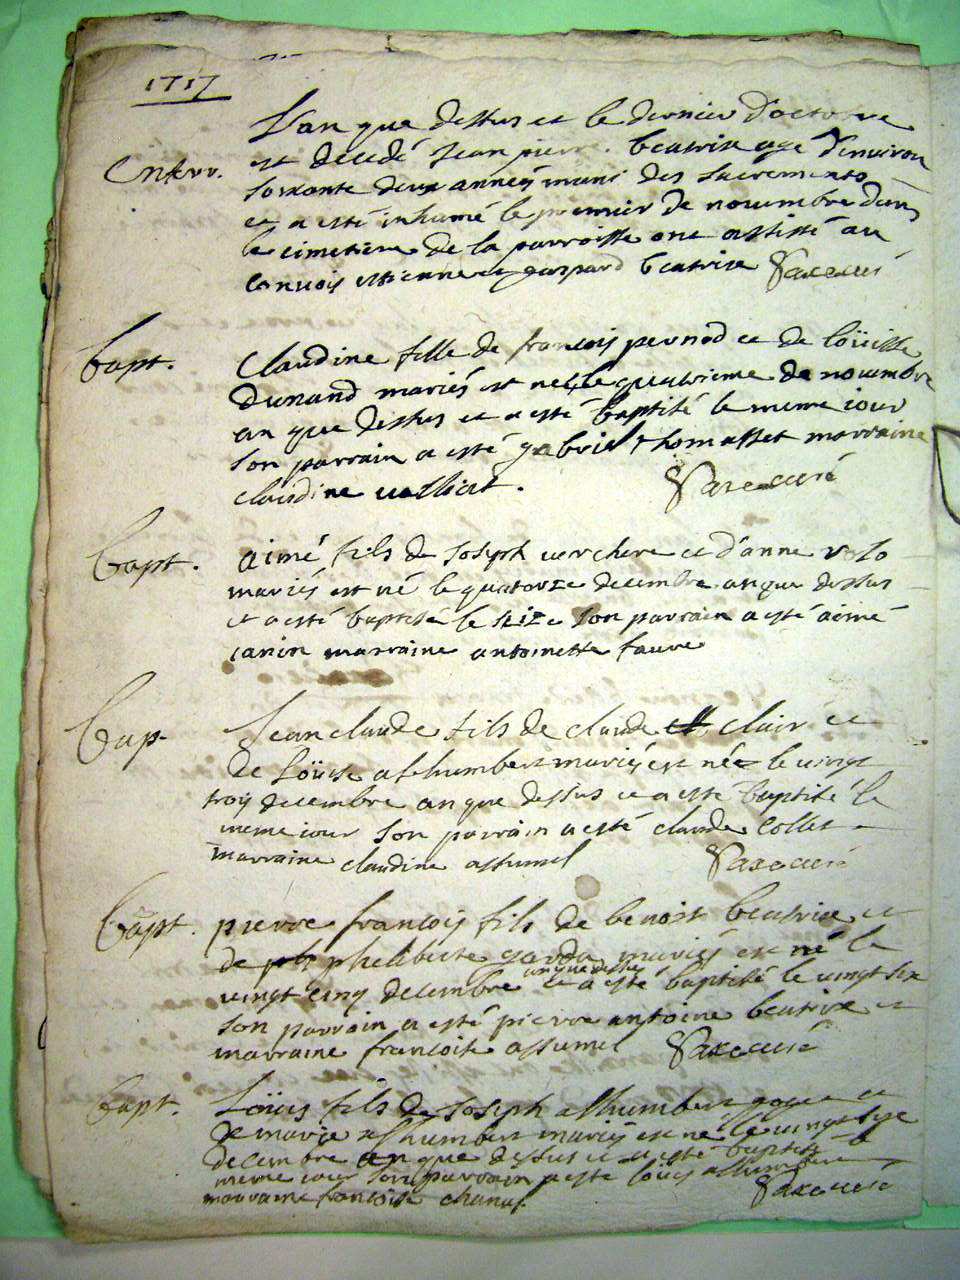 1717
L'an que dessus et le dernier d'octobre
Enterr. est decedé Jean pierre beatrix agé d'environ
soixante deux années muni des sacrements
et a esté inhumé le premier de nouembre dans
le cimetiere de la parroisse ont assisté au
conuois estienne et gaspard beatrix Sax curé
bapt. Claudine fille de francois pernod et de loüisse
dunand mariés est née le quatrieme de nouembre
an que dessus et a esté baptisé le meme iour
son parrain a esté gabriel thomasset marraine
claudine
Bapt. aimé fils de Joseph verchere et d'anne
mariés est né le quatorze decembre an que dessus
et a esté baptisé le seize son parrain a esté aimé
ianin marraine antoinette faure
Bap. Jean claude fils de claude clair et
de Loüise mariés est né le vingt
troy decembre an que dessus et a esté baptisé le
meme iour son parrain a esté claude collet
marraine claudine assumel Sax curé
Bapt. pierre francois fils de benoist beatrix et
de pheliberte mariés est né le
an que dessus
vingt cinq decembre et a esté baptisé le vingt six
son parrain a esté pierre antoine beatrix et
marraine francoise assumel Sax curé
Bapt. Loüis fils de Joseph et
de marie mariés est né le vingt
decembre an que dessus et a esté baptisé le
meme iour son parrain a esté loüis
marraine francoise chanal Sax curé